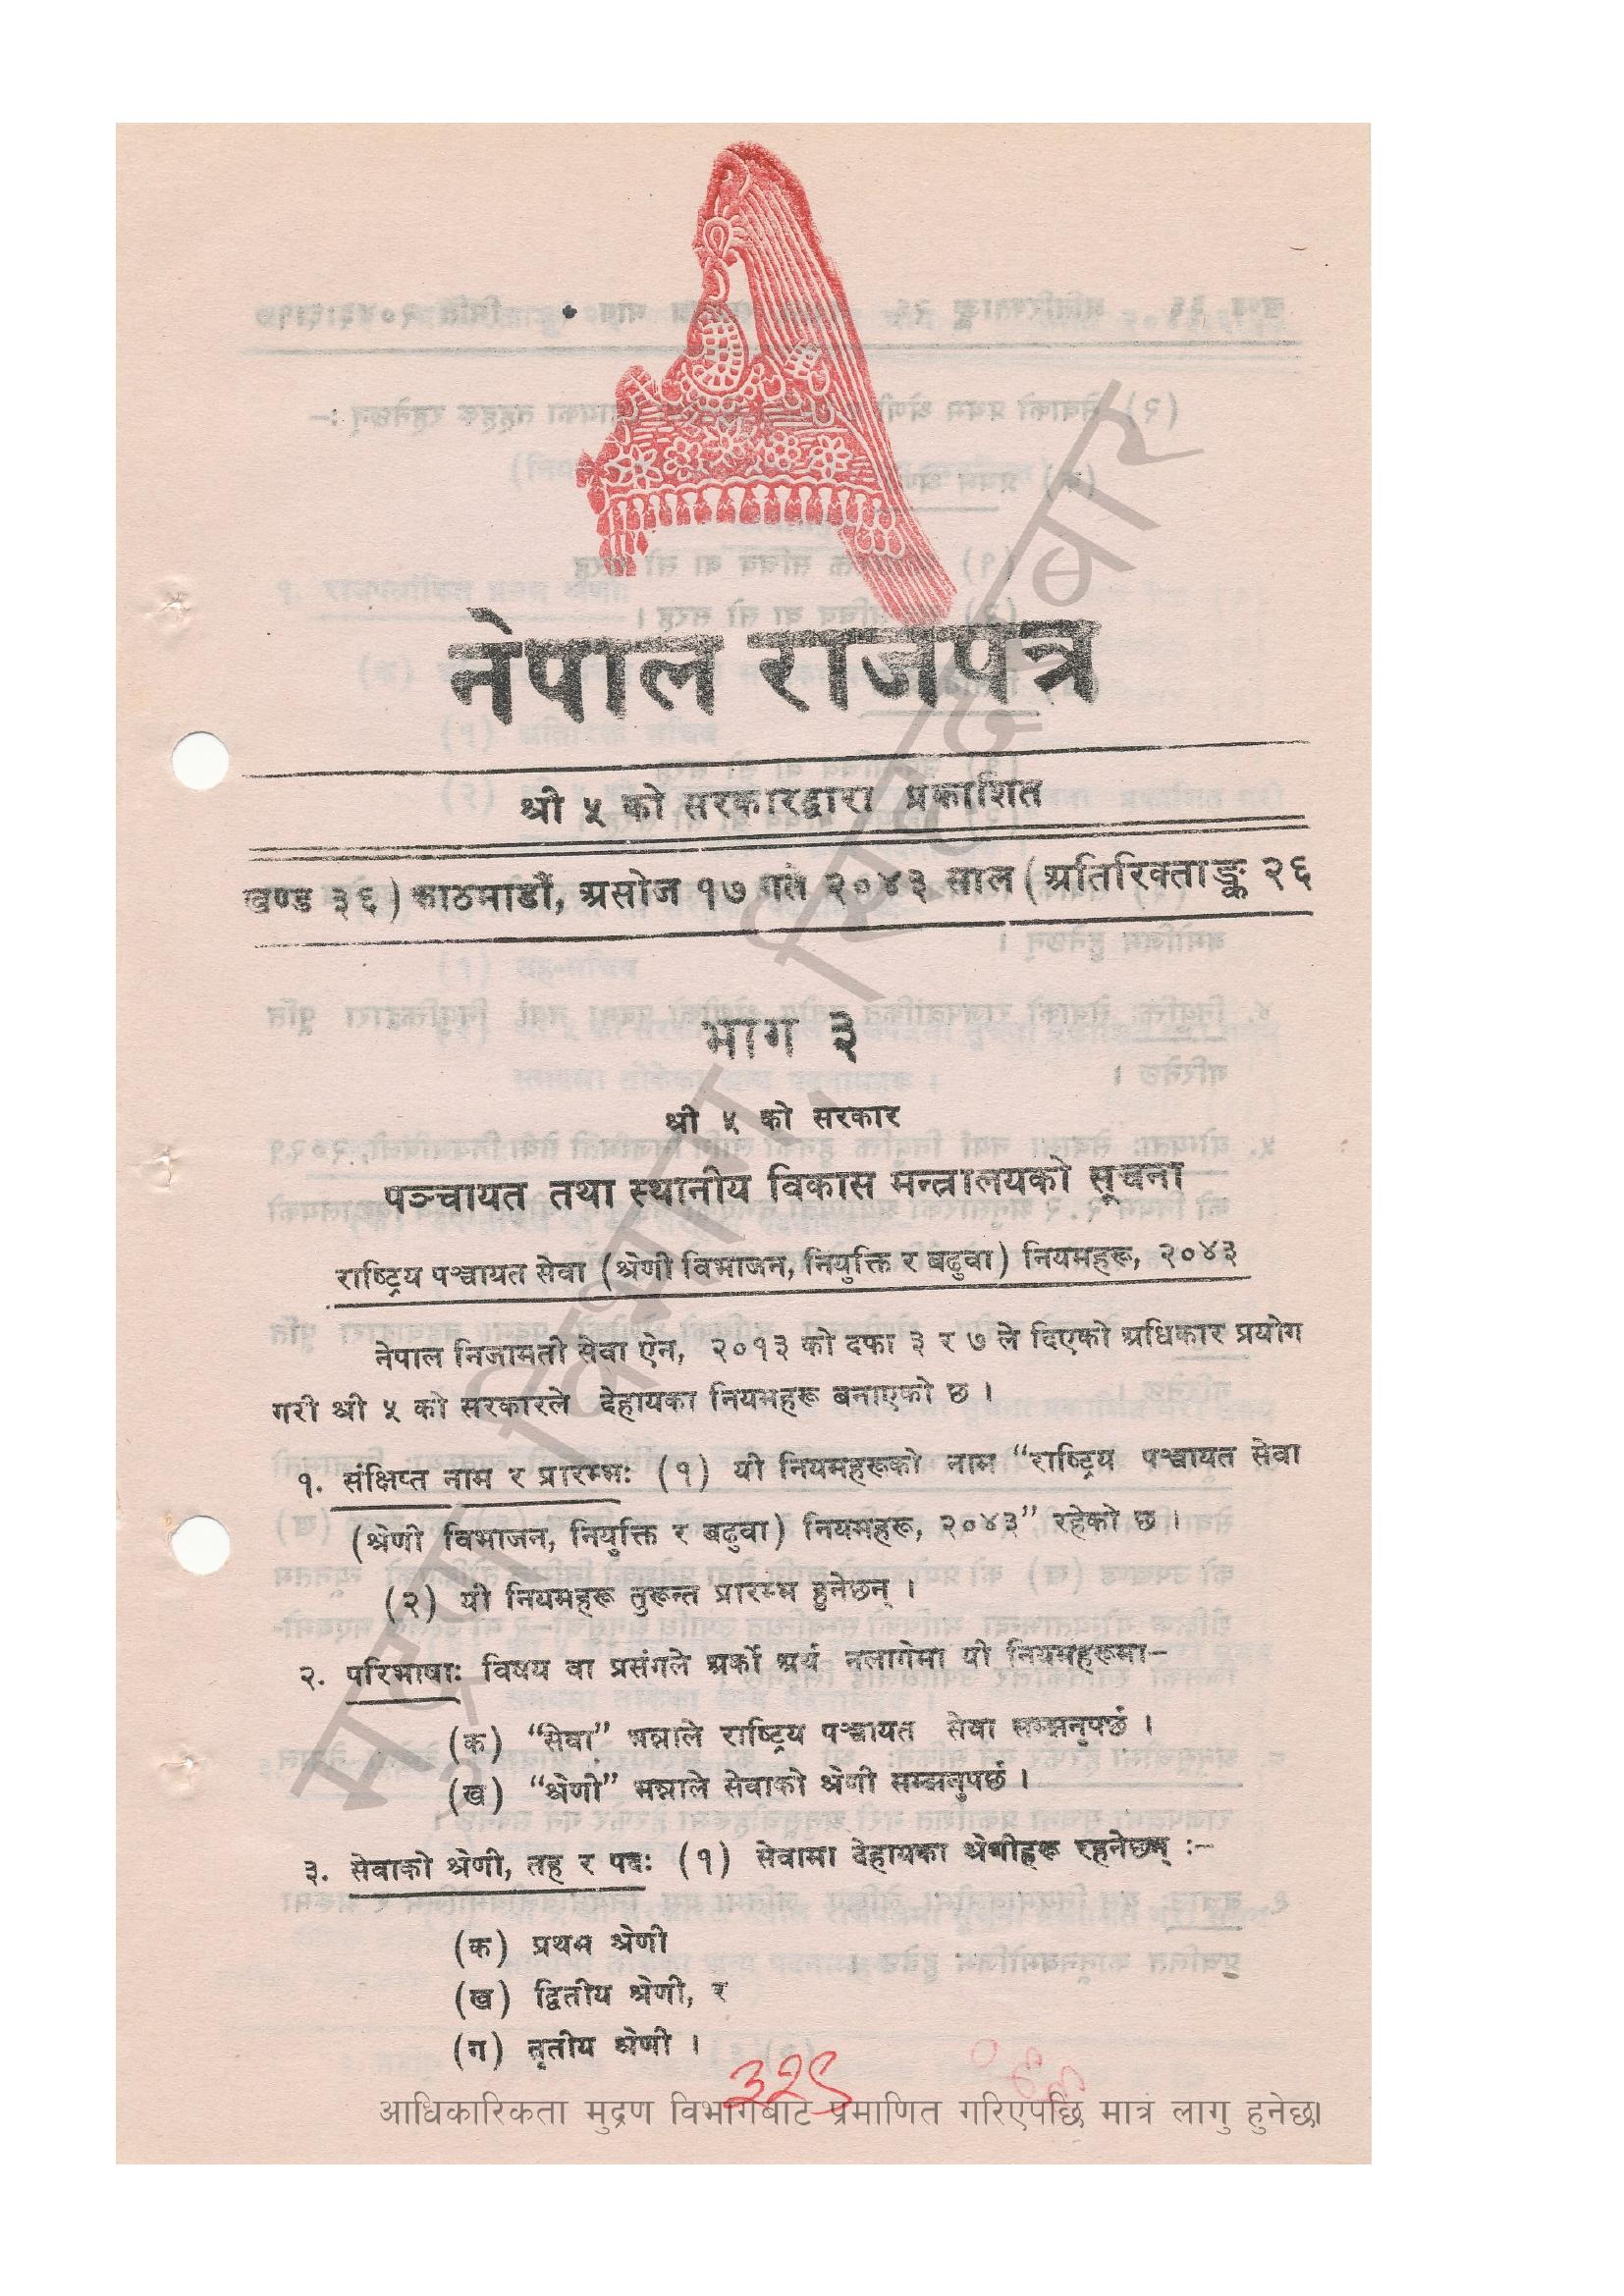 नेपाल राजपत्र
श्री ५ को सरकारद्वारा प्रकाशित
खण्ड ३६) काठमाडौं, असोज १७ गते २०४३ साल (अतिरिक्ताङ्क २६
भाग ३
श्री ५ को सरकार
पञ्चायत तथा स्थानीय विकास मन्त्रालयको सूचना
राष्ट्रिय पञ्चायत सेवा (श्रेणी विभाजन, नियुक्ति र बढुवा) नियमहरू, २०४३
नेपाल निजामती सेवा ऐन, २०१३ को दफा ३ र ७ ले दिएको अधिकार प्रयोग
गरी श्री ५ को सरकारले देहायका नियमहरू बनाएको छ ।
१. संक्षिप्त नाम र प्रारम्भः (१) यी नियमहरूको नाम “राष्ट्रिय पञ्चायत सेवा
(श्रेणी विभाजन, नियुक्ति र बढुवा) नियमहरू, २०४३” रहेको छ ।
(२) यी नियमहरू तुरून्त प्रारम्भ हुनेछन् ।
२. परिभाषाः विषय वा प्रसंगले अर्को अर्थ नलागेमा यी नियमहरूमा–
(क) “सेवा” भन्नाले राष्ट्रिय पञ्चायत सेवा सम्झनुपर्छ ।
(ख) “श्रेणी” भन्नाले सेवाको श्रेणी सम्झनुपर्छ ।
३. सेवाको श्रेणी, तह र पदः (१) सेवामा देहायका श्रेणीहरू रहनेछन् :–
(क) प्रथम श्रेणी
(ख) द्वितीय श्रेणी, र
(ग) तृतीय श्रेणी ।
आधिकारिकता मुद्रण विभागबाट प्रमाणित गरिएपछि मात्र लागु हुनेछ।
मुद्रण विभाग, सिंहदरबार